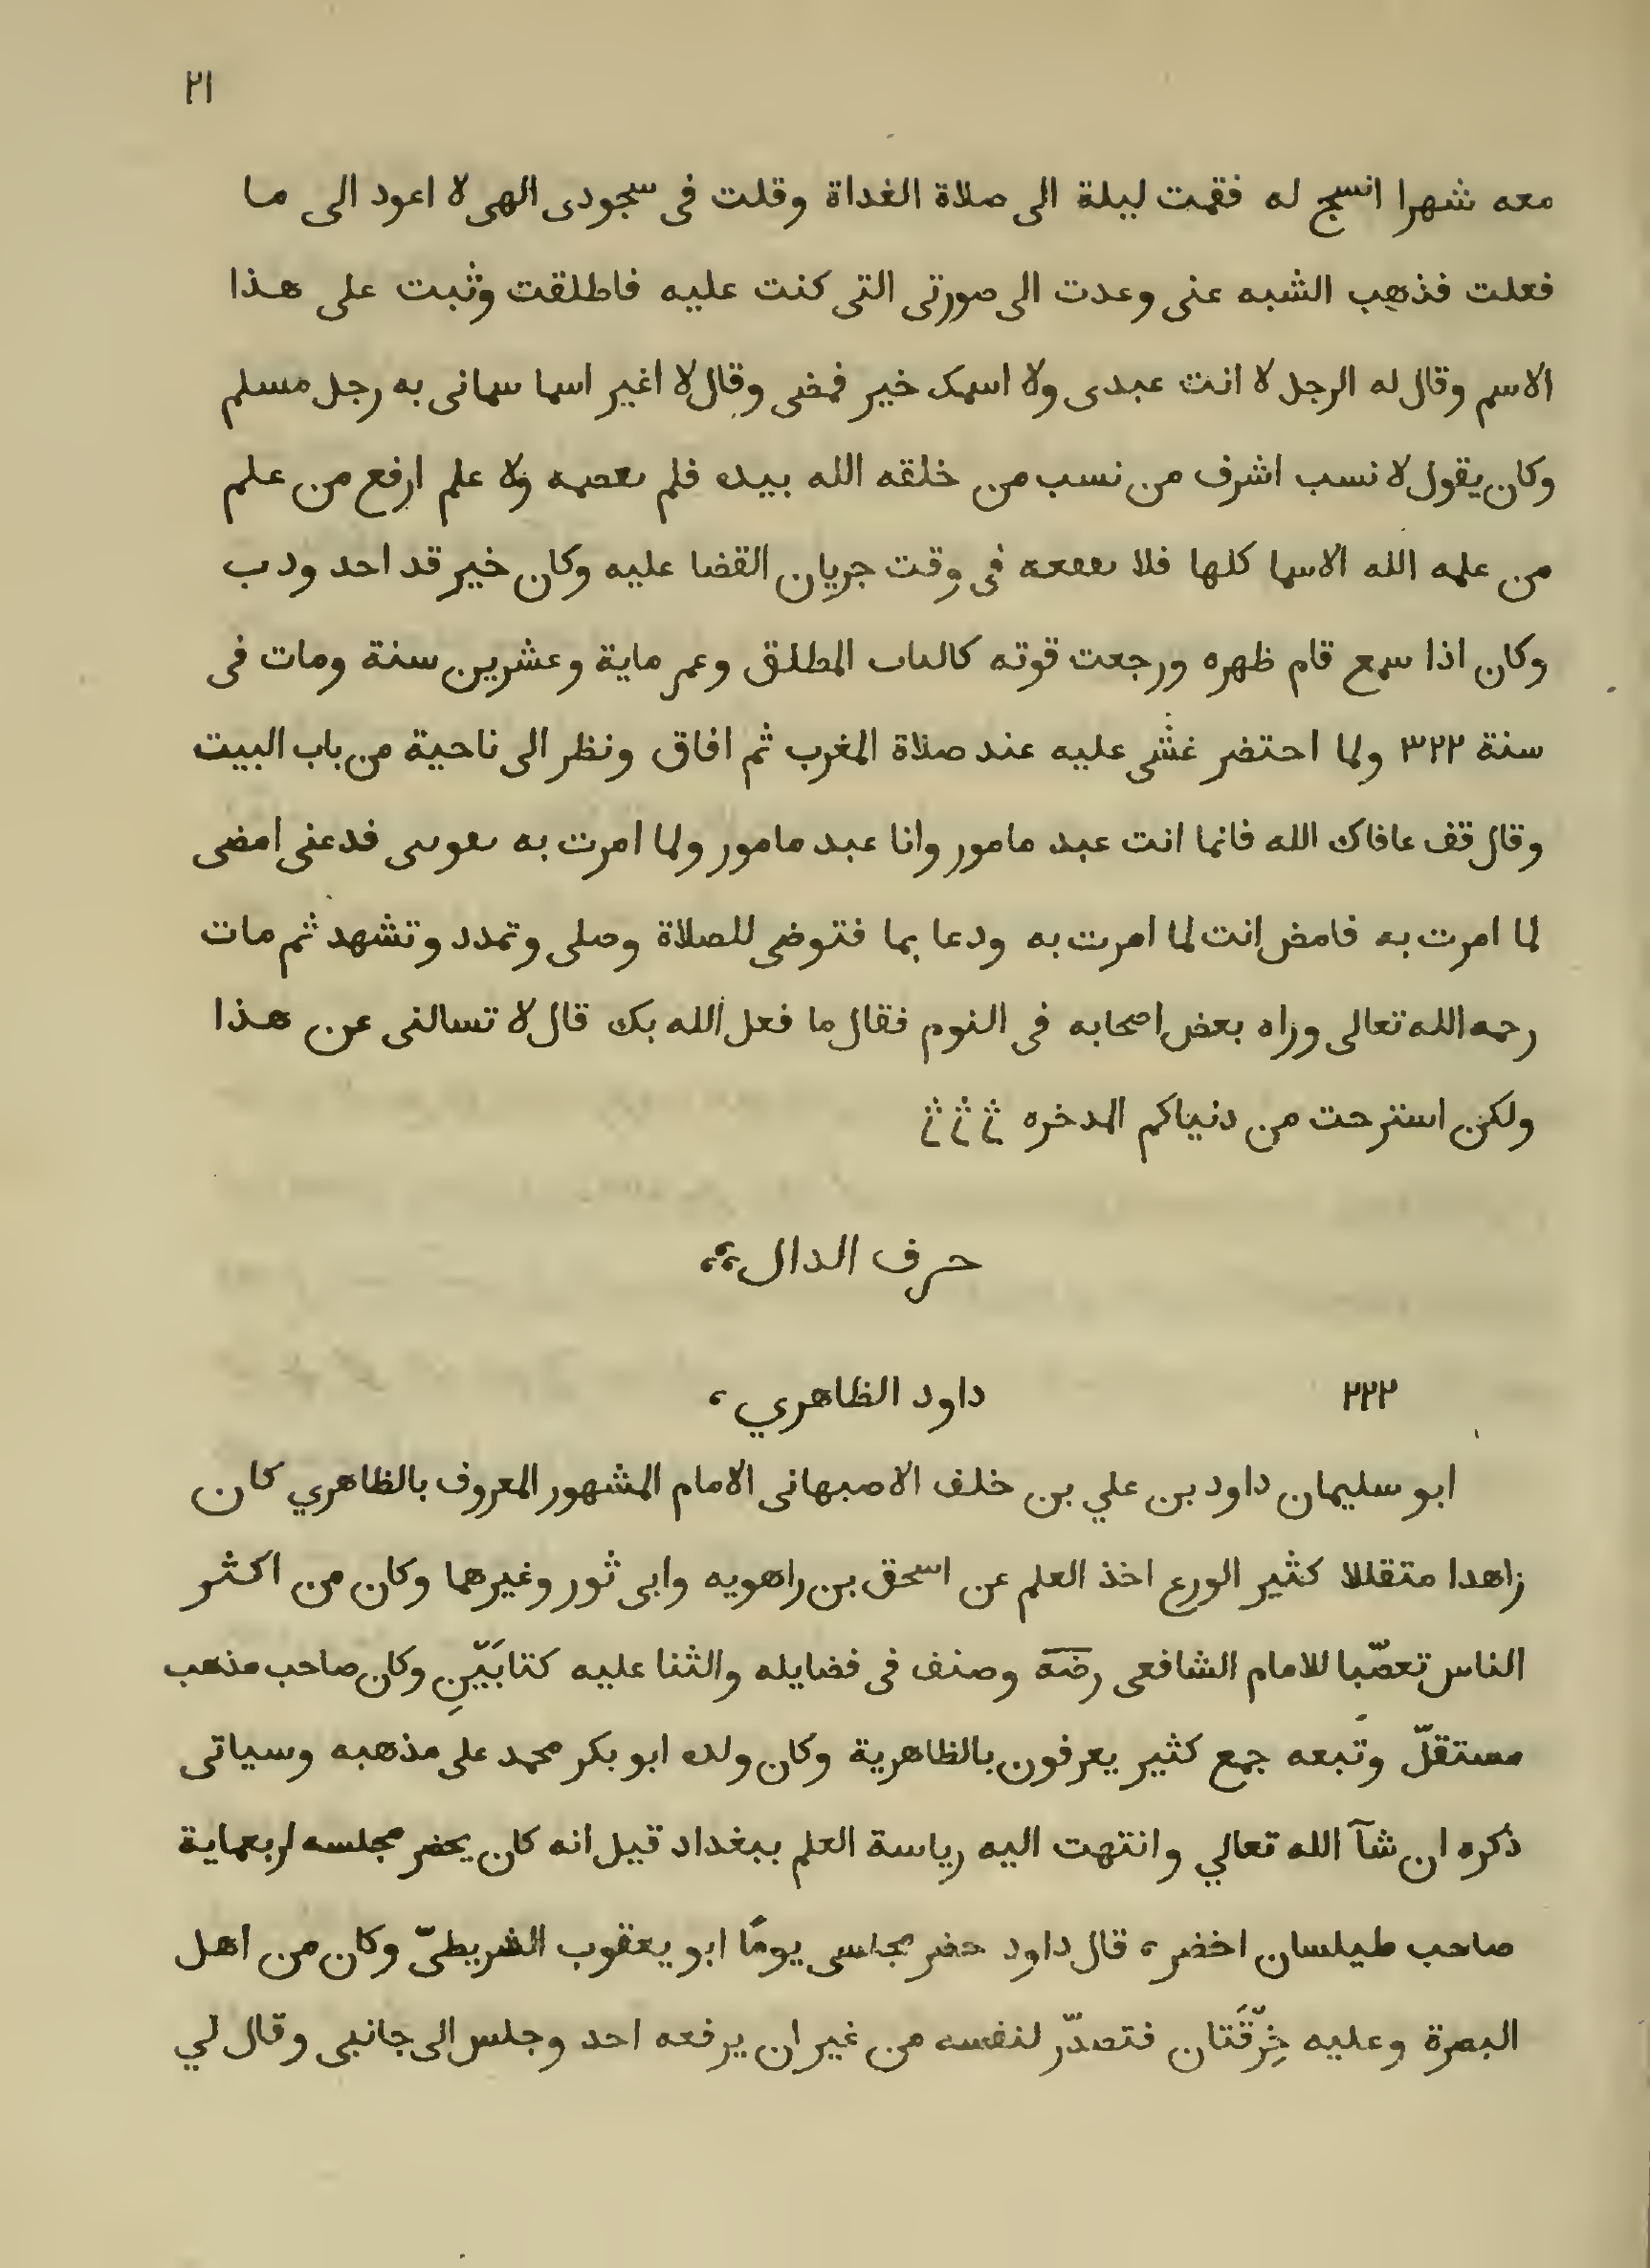 ٢١
معه شهرا انسج له فقمت ليلة الى صلاة الغداة وقلت فى سجودى الهى لا اعود الى ما
فعلت فذهب الشبه عنى وعدت الى صورتى التى كنت عليه فاطلقت وثبت على هذا
الاسم وقال له الرجل لا انت عبدى ولا اسمك خير فمضى وقال لا اغير اسما سمانى به رجل مسلم
وكان يقول لا نسب اشرف من نسب من خلقه الله بيده فلم ولا علم ارفع من علم
من علمه الله الاسما كلها فلا فى وقت جريان القضا عليه وكان خير قد احد ودب
وكان اذا سمع قام ظهره ورجعت قوته المطلق وعمر ماية وعشرين سنة ومات فى
سنة ٣٢٢ ولما احتضر غشى عليه عند صلاة المغرب ثم افاق ونظر الى ناحية من باب البيت
وقال قف عافاك الله فانما انت عبد مامور وانا عبد مامور ولما امرت به فدعنى امضى
لما امرت به فامض انت لما امرت به ودعا بما فتوضى للصلاة وصلى وتمدد وتشهد ثم مات
رحمه الله تعالى وراه بعض اصحابه فى النوم فقال ما فعل الله بك قال لا تسالنى عن هذا
ولكن استرحت من دنياكم المدخره
حرف الدال
٢٢٢ داود الظاهري ،
ابو سليمان داود بن علي بن خلف الاصبهانى الامام المشهور المعروف بالظاهري كان
زاهدا متقللا كثير الورع اخذ العلم عن اسحق بن راهويه وابى ثور وغيرهما وكان من اكثر
الناس تعصّبا للامام الشافعى رضه وصنف فى فضايله والثنا عليه كتابَيّنِ وكان صاحب مذهب
مستقلّ وتَبعه جمع كثير يعرفون بالظاهرية وكان ولده ابو بكر محمد على مذهبه وسياتى
ذكره ان شآ الله تعالي وانتهت اليه رياسة العلم ببغداد قيل انه كان يحضر مجلسه اربعماية
صاحب طيلسان اخضر ، قال داود حضر مجلسى يومًا ابو يعقوب الشريطىّ وكان من اهل
البصرة وعليه خِرّقَتان فتصدّر لنفسه من غير ان يرفعه احد وجلس الى جانبى وقال لي